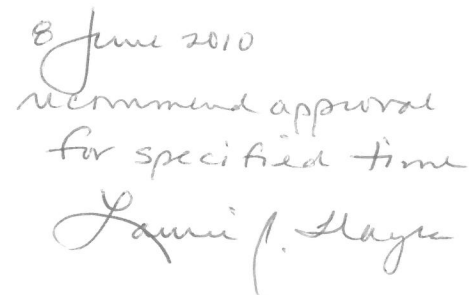 8 June 2010
recommend approval
for specified time
Laurie J.